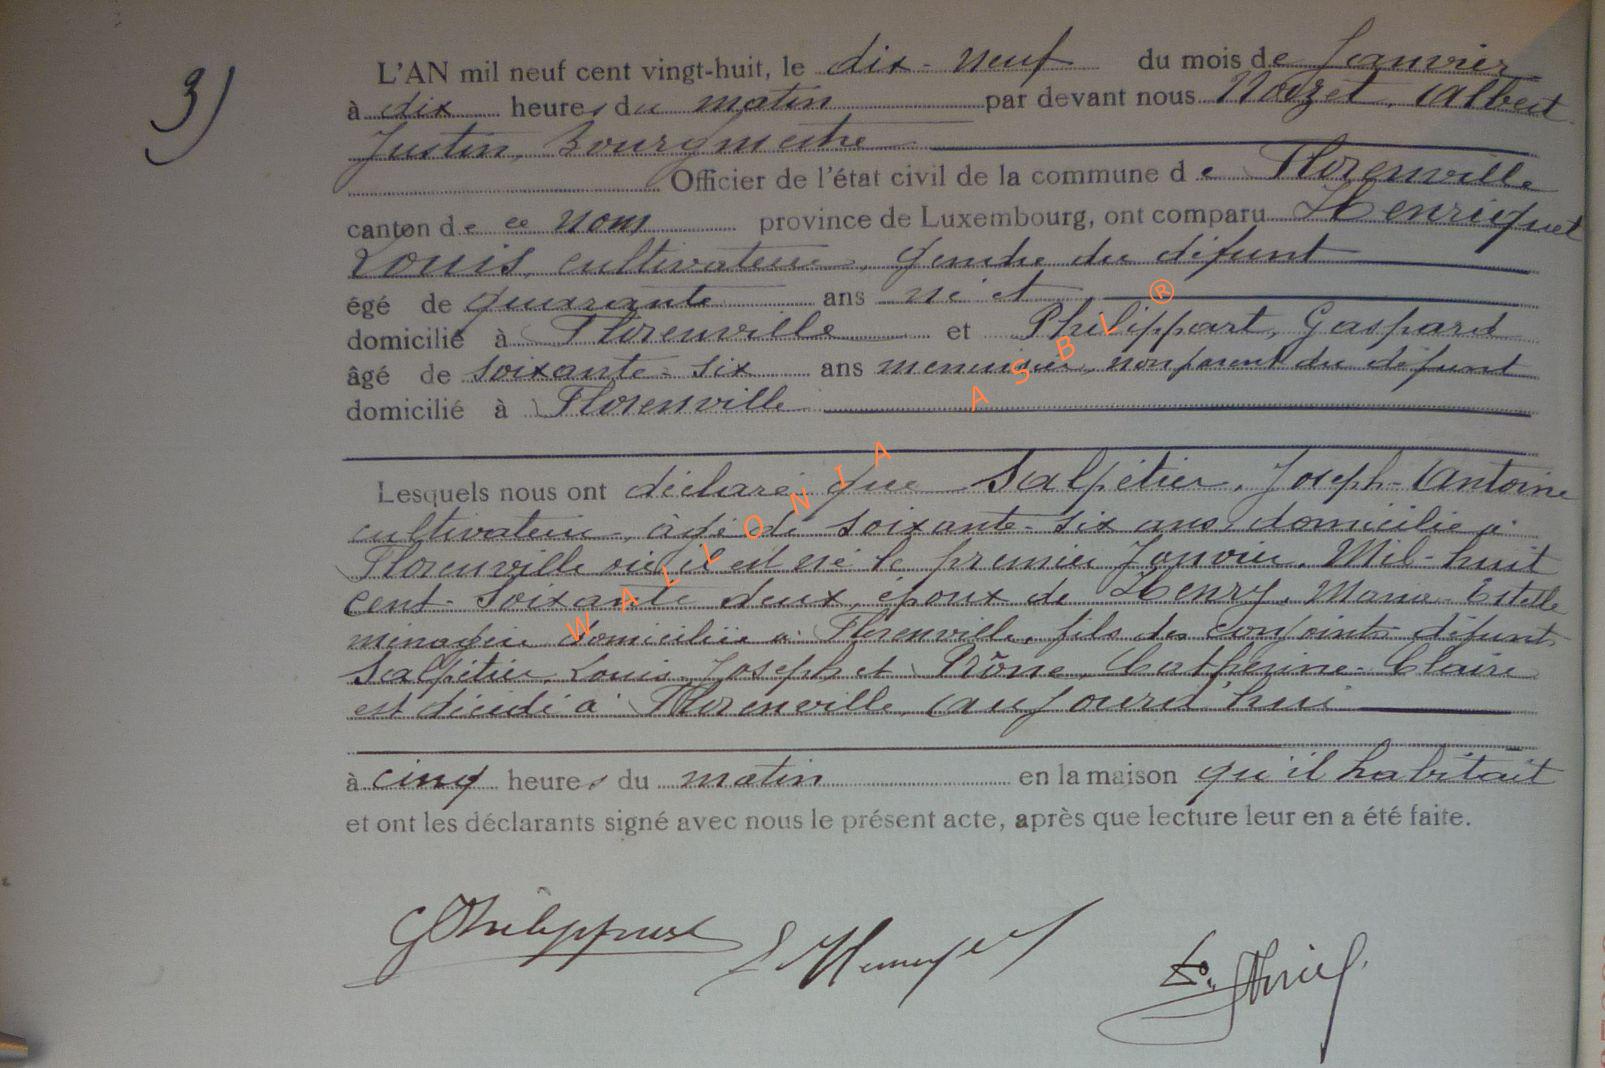 3)
L'AN mil neuf cent vingt-huit, le dix-neuf du mois de Janvier
à dix heures du matin par devant nous Nodzet, Albert
Justin, Bourgmestre
Officier de l'état civil de la commune de Florenville
canton de ce nom province de Luxembourg, ont comparu Henriquet
Louis, cultivateur, gendre du défunt
égé de quarante ans né et
domicilié à Florenville et Philippart, Gaspard
âgé de soixante-six ans menuisier, non parent du défunt
domicilié à Florenville
Lesquels nous ont déclaré que Salpétier, Joseph-Antoine
cultivateur, âgé de soixante-six ans, domicilié à
Florenville où il est né le premier Janvier, Mil-huit
cent-soixante deux, époux de Henry, Maria-Estelle
ménagère domiciliée à Florenville, fils des conjoints défunts
Salpétier, Louis-Joseph et Catherine-Claire
est décédé à Florenville, aujourd'hui
à cinq heures du matin en la maison qu'il habitait
et ont les déclarants signé avec nous le présent acte, après que lecture leur en a été faite.
G Philippart
WALLONIA ASBL ®